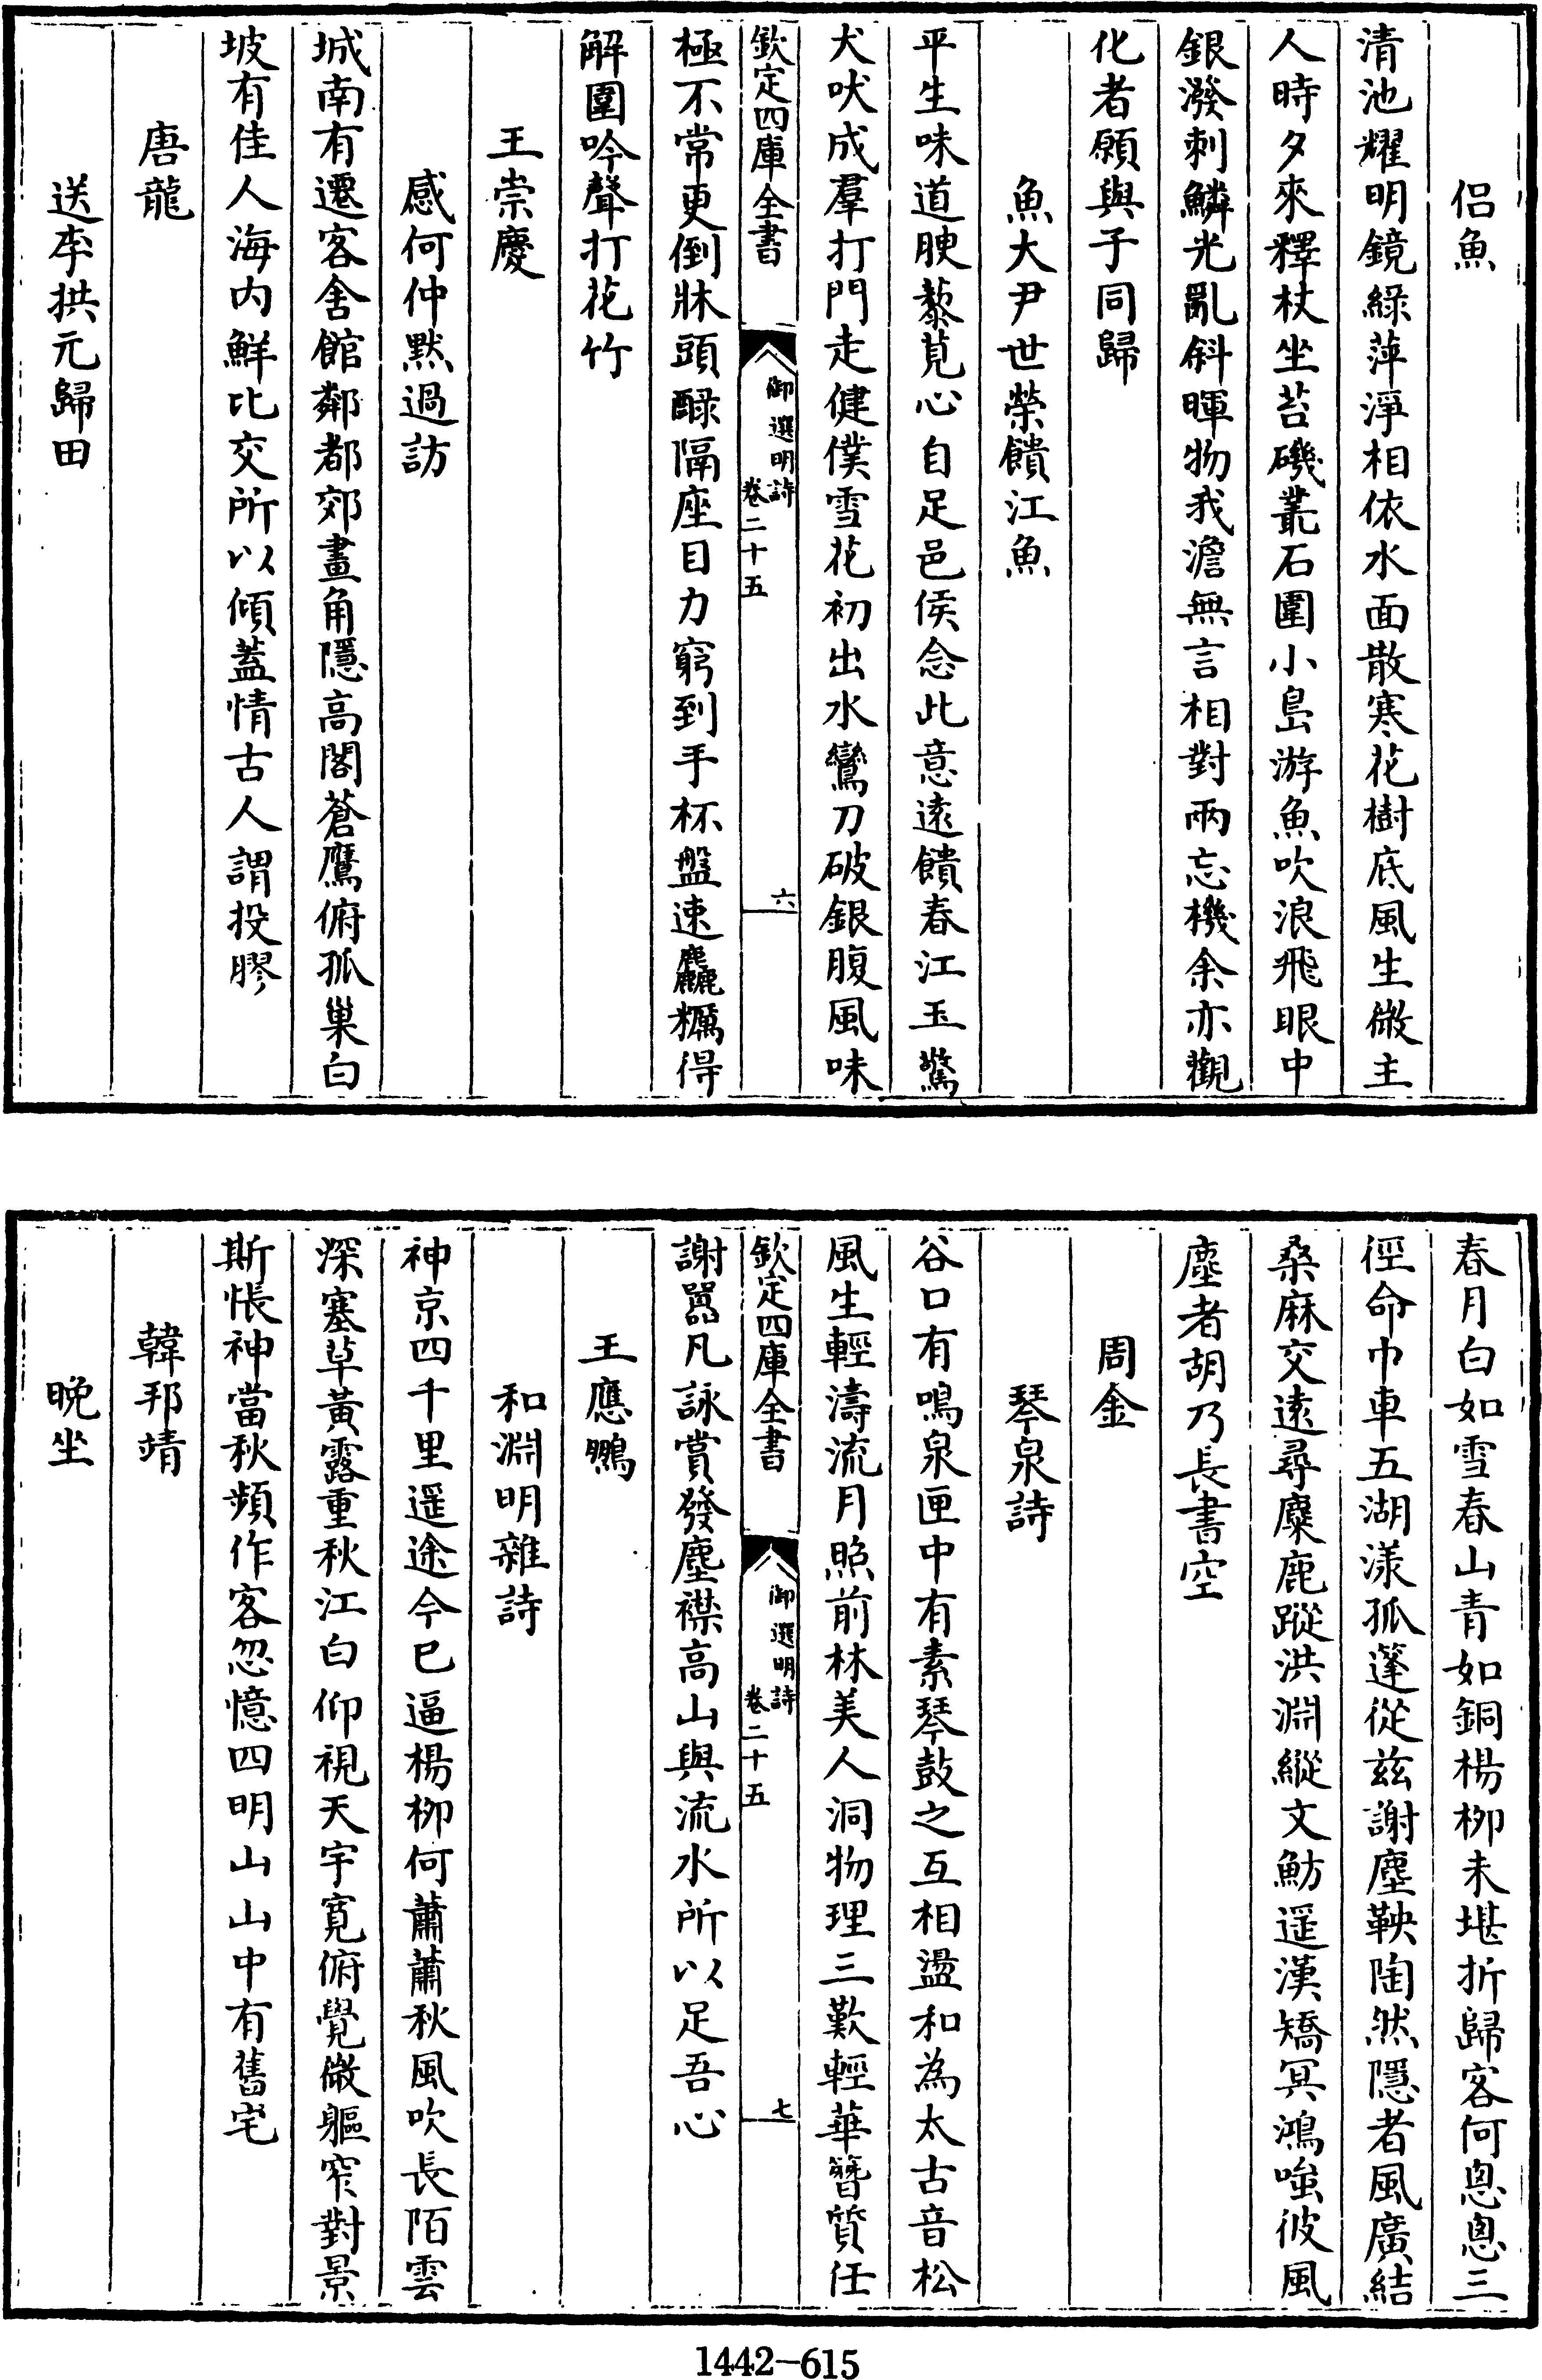 侣魚
清池耀明鏡綠萍淨相依水面散寒花樹底風生微主
人時夕來釋杖坐苔磯叢石圍小島游魚吹浪飛眼中
銀潑刺鱗光亂斜暉物我澹無言相對兩忘機余亦觀
化者願與子同歸
魚大尹世榮饋江魚
平生味道腴藜莧心自足邑侯念此意遠饋春江玉驚
犬吠成羣打門走健僕雪花初出水鸞刀破銀腹風味
欽定四庫全書
御選明詩
卷二十五
六
極不常更倒牀頭醁隔座目力窮到手杯盤速麤糲得
解圍吟聲打花竹
王崇慶
感何仲默過訪
城南有遷客舍館鄰都郊畫角隱高閣蒼鷹俯孤巢白
坡有佳人海内鮮比交所以傾蓋情古人謂投膠
唐龍
送李拱元歸田
春月白如雪春山青如銅楊柳未堪折歸客何悤悤三
徑命巾車五湖漾孤蓬從兹謝塵鞅陶然隱者風廣結
桑麻交遠尋麋鹿蹤洪淵縱文魴遥漢矯冥鴻嗤彼風
塵者胡乃長書空
周金
琴泉詩
谷口有鳴泉匣中有素琴鼓之互相盪和為太古音松
風生輕濤流月照前林美人洞物理三歎輕華簪質任
欽定四庫全書
御選明詩
卷二十五
七
謝囂凡詠賞發塵襟高山與流水所以足吾心
王應鵬
和淵明雜詩
神京四千里遥途今已逼楊柳何蕭蕭秋風吹長陌雲
深塞草黃露重秋江白仰視天宇寛俯覺微軀窄對景
斯悵神當秋頻作客忽憶四明山山中有舊宅
韓邦靖
晚坐
1442-615